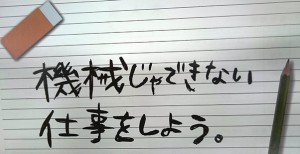 機械じゃできない
仕事をしよう。